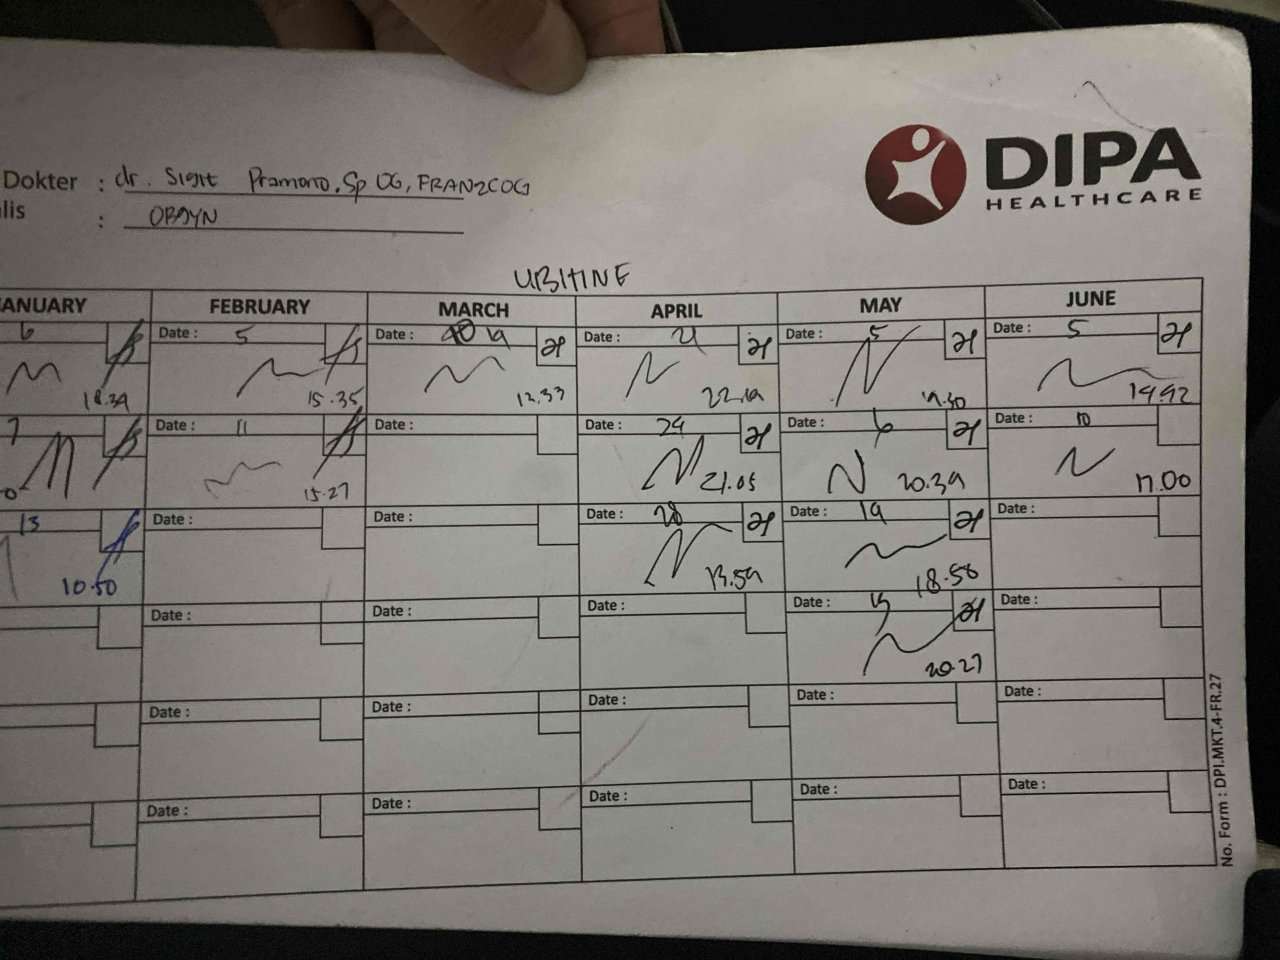 DIPA
HEALTHCARE
Dokter : dr. Sigit Pramono, Sp OG, FRANZCOG
lis : OBGYN
UBITINE
ANUARY FEBRUARY MARCH APRIL MAY JUNE
6 Date : 5 Date : 19 Date : 21 Date : 5 Date : 5
18.39 15.35 12.33 22.19 19.30 14.42
7 Date : 11 Date : Date : 24 Date : 6 Date : 10
15.27 21.05 20.39 17.00
13 Date : Date : Date : 28 Date : 19 Date :
10.50 13.59 18.58
Date : Date : Date : Date : Date :
20.27
Date : Date : Date : Date : Date :
Date : Date : Date : Date : Date :
No. Form : DPI.MKT.4-FR.27